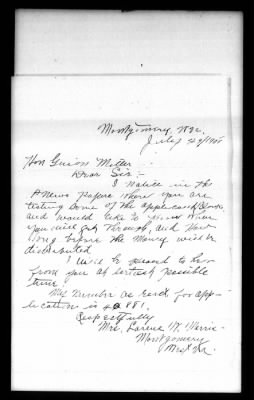 Montgomery, W Va.
July 29/1908
Hon Guion Miller
Dear Sir:-
I notice in the
News Papers where you are
testing some of the applications
and would like to know when
you will get through, and how
long before the Money will be
distributed
I will be pleased to hear
from you at earliest possible
time.
My Number as reads for app-
lication is
Respectfully
Mrs. Lorena W. Morris
Montgomery
West Va.